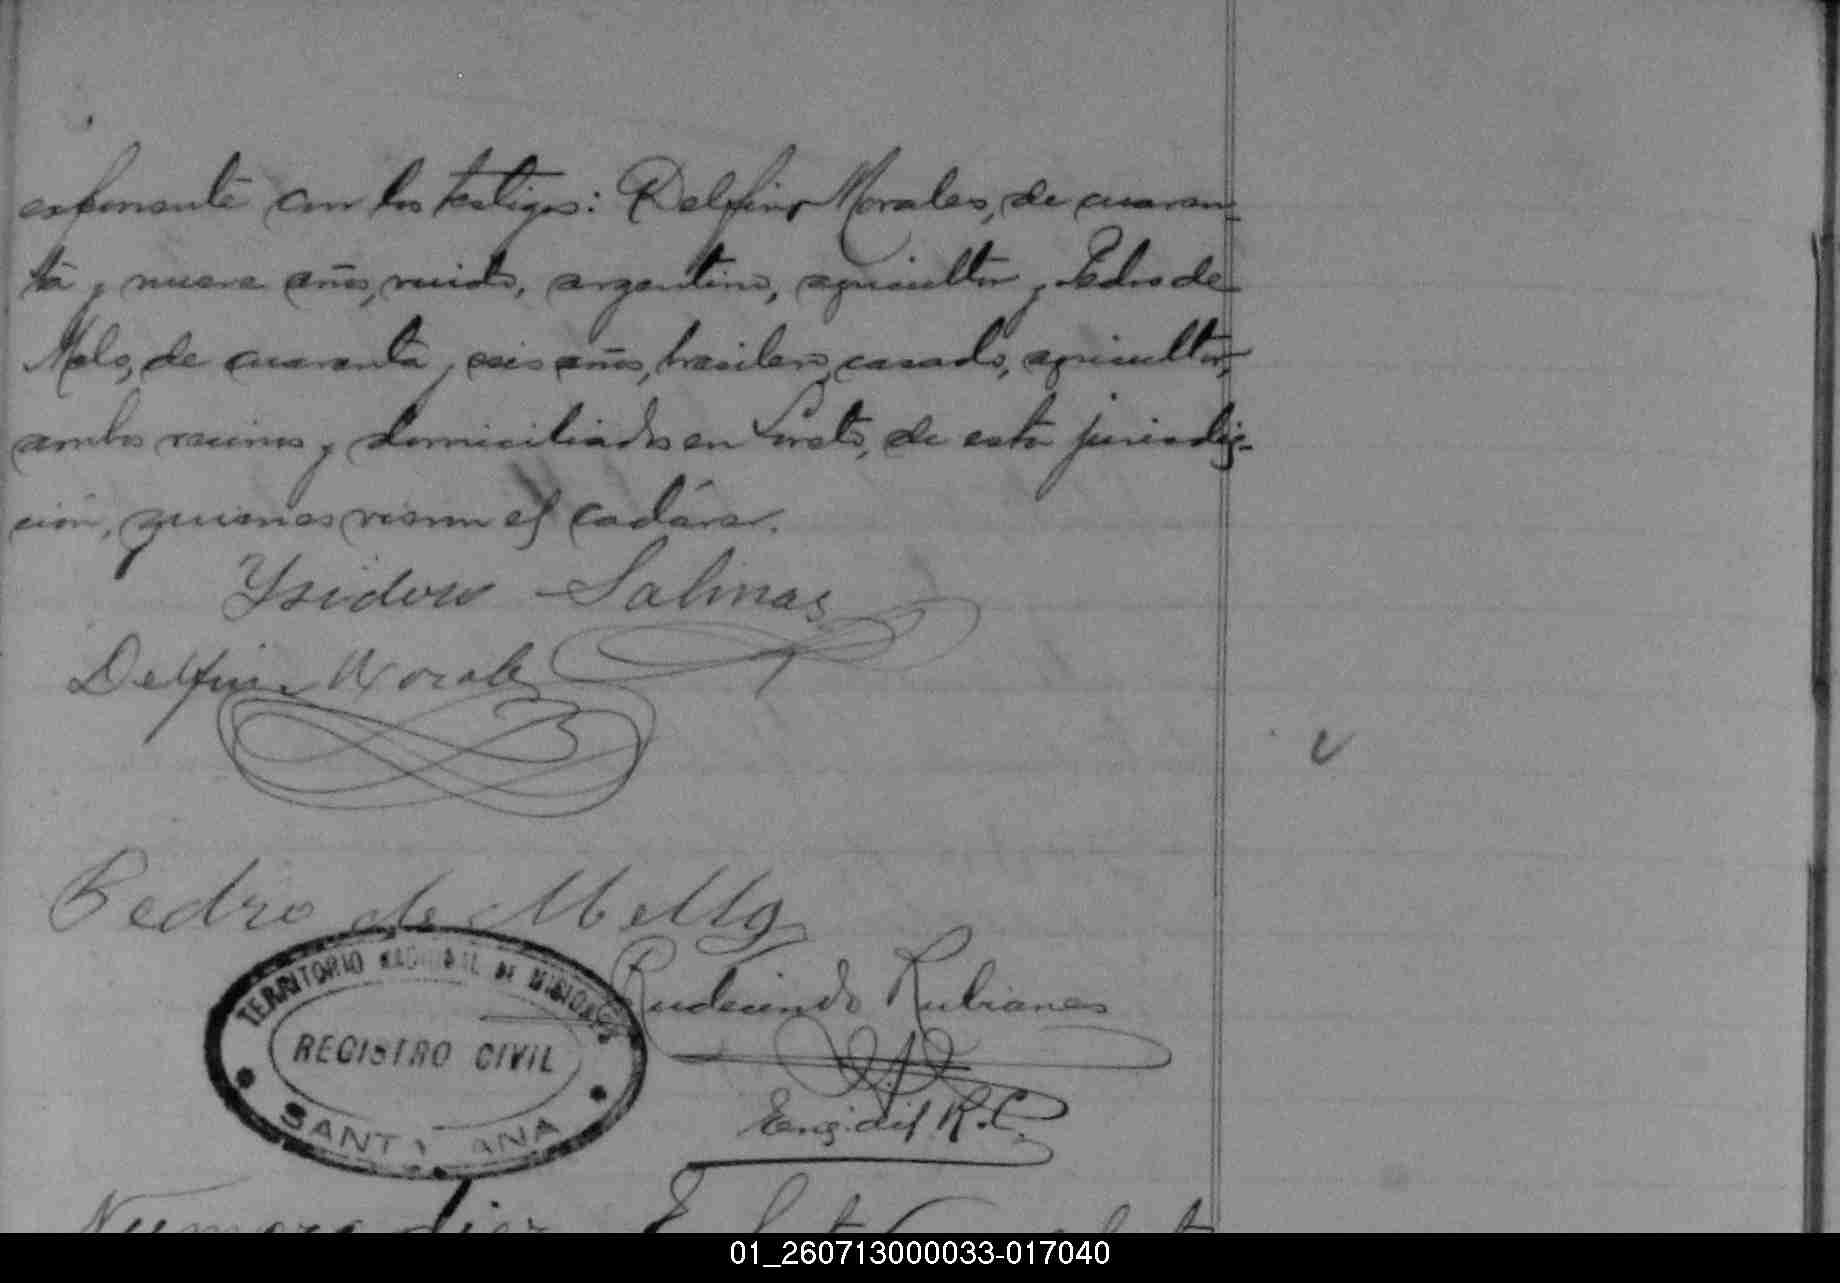 exponente con los testigos: Delfino Morales, de cuaren-
ta y nueve años, viudo, argentino, agricultor y Pedro de
Melo, de cuarenta y seis años, brasilero, casado, agricultor,
ambos vecinos y domiciliados en Loreto, de esta jurisdic-
ción, quienes vieron el cadáver.
Ysidoro Salinas
Delfino Morales
Pedro de Mello
Rudecindo Rubianes
Eng. del R. C.
TERRITORIO NACIONAL DE MISIONES
REGISTRO CIVIL
SANTA ANA
Numero diez
01_260713000033-017040